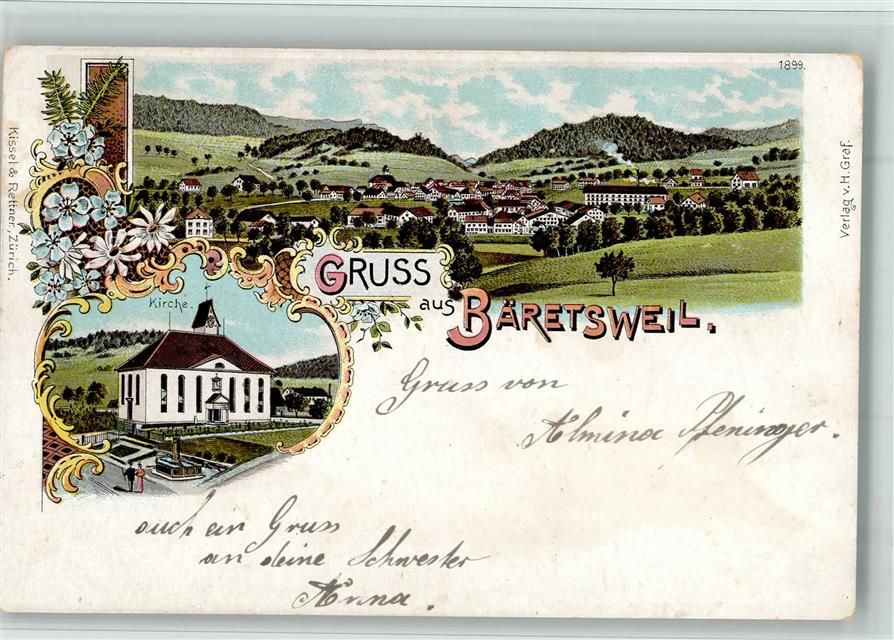 1899.
Kissel & Rettner, Zürich.
Verlag v. H. Graf.
Kirche.
GRUSS
aus BÄRETSWEIL.
Gruss von
Almina Pfeninger.
auch ein Gruss
an deine Schwester
Anna.